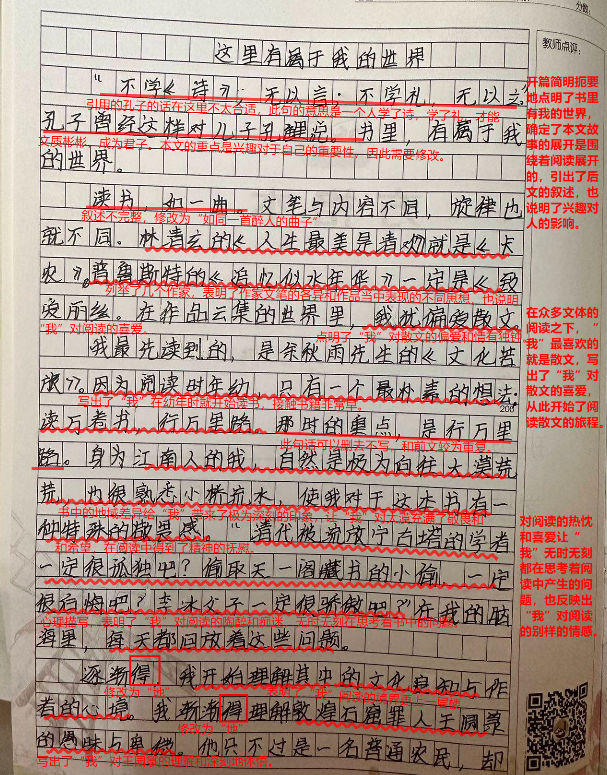 分数:
教师点评:
这里有属于我的世界
“不学《诗》,无以言;不学礼,无以立。”
引用的孔子的话在这里不太合适,此句的意思是一个人学了诗,学了礼,才能
孔子曾经这样对儿子孔鲤说。书里,有属于我
文质彬彬,成为君子,本文的重点是兴趣对于自己的重要性,因此需要修改。
的世界。
读书,如一曲。文笔与内容不同,旋律也
叙述不完整,修改为“如同一首醉人的曲子”
就不同。林清玄的《人生最美是清欢》就是《卡
农》。普鲁斯特的《追忆似水年华》一定是《致
列举了几个作家,表明了作家文笔的各异和作品当中表现的不同思想,也说明
爱丽丝。在作品云集的世界里,我犹偏爱散文。
“我”对阅读的喜爱。
点明了“我”对散文的偏爱和情有独钟
我最先读到的,是余秋雨先生的《文化苦
旅》。因为阅读时年幼,只有一个最朴素的想法:
写出了“我”在幼年时就开始读书,接触书籍非常早。
200
读万卷书,行万里路。那时的重点,是行万里
此句话可以删去不写,和前文较为重复。
路。身为江南人的我,自然是极为向往大漠荒
荒,也很熟悉小桥流水,使我对于这本书有一
书中的地域差异给“我”带来了极为深刻的印象,让“我”对大漠充满了敬畏和
种特殊的敬畏感。“清代被流放宁古塔的学者
和希望,在阅读中得到了精神的抚慰。
一定很孤独吧?偷取天一阁藏书的小偷,一定
很后悔吧?李冰父子一定很骄傲吧?”在我的脑
海里,每天都回放着这些问题。
逐渐得,我开始理解其中的文化良知与作
修改为“地”
者的心境。我渐渐得理解敦煌石窟罪人王圆箓
修改为“地”
的愚昧与卑微。他只不过是一名普通农民,却
开篇简明扼要
地点明了书里
有我的世界,
确定了本文故
事的展开是围
绕着阅读展开
的,引出了后
文的叙述,也
说明了兴趣对
人的影响。
在众多文体的
阅读之下,“
我”最喜欢的
就是散文,写
出了“我”对
散文的喜爱,
从此开始了阅
读散文的旅程。
对阅读的热忱
和喜爱让“
我”无时无刻
都在思考着阅
读中产生的问
题,也反映出
“我”对阅读
的别样的情感。